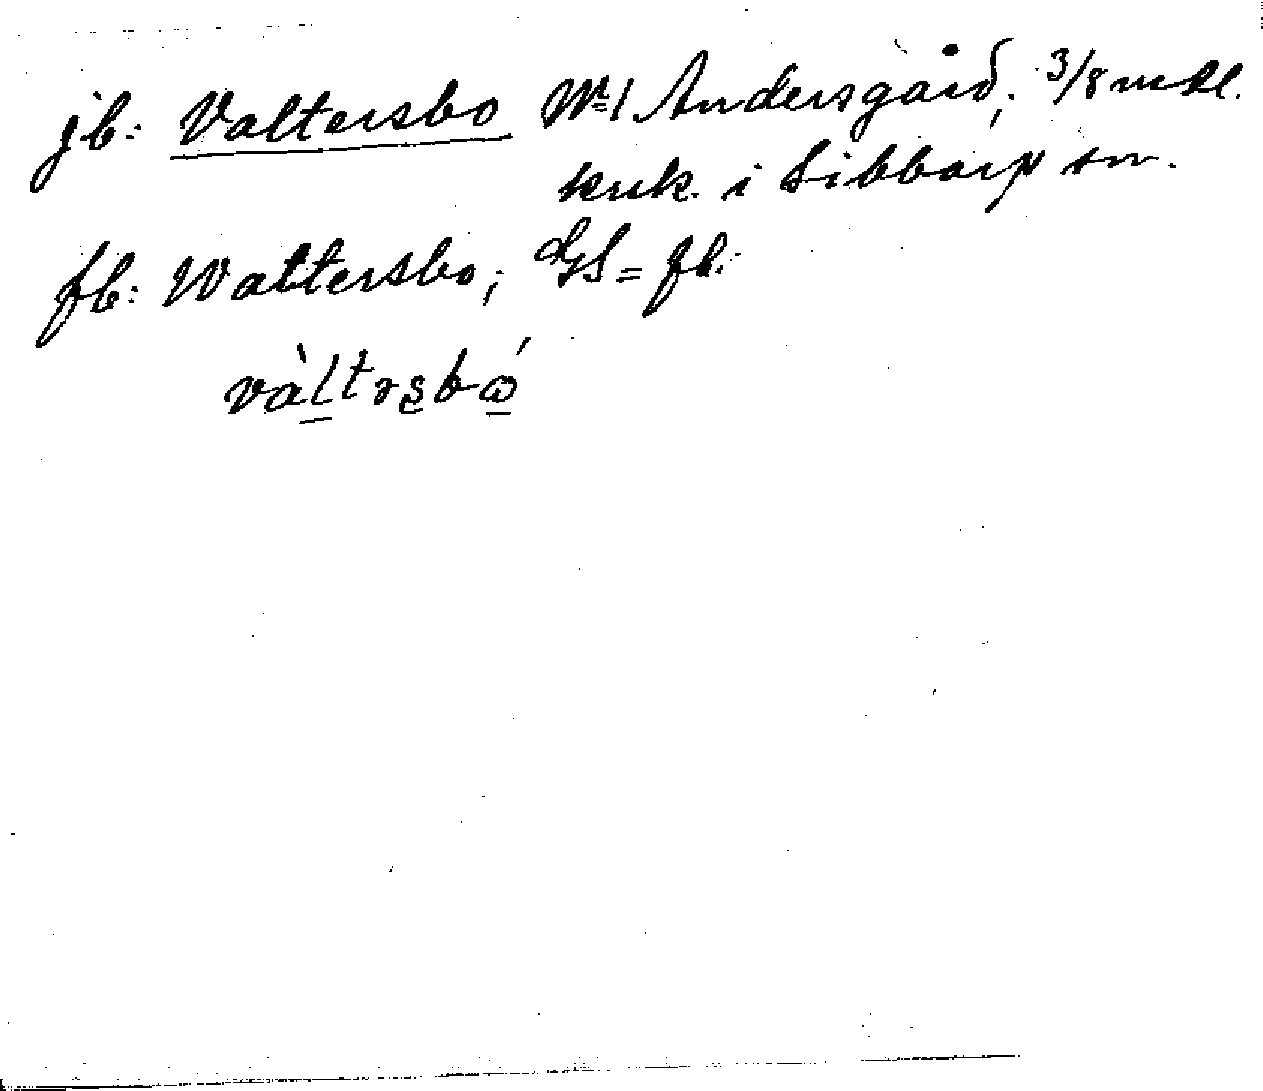 jb: Valtersbo No 1 Andersgård, 3/8 mtl.
krk. i Sibbarp sn.
fb: Waltersbo; GS = fb:
và̱ltrsbώ